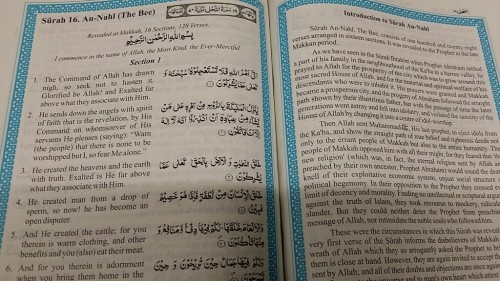 Sûrah 16. An-Nahl (The Bee)
Revealed at Makkah, 16 Sections, 128 Verses.
بِسْمِ اللهِ الرَّحْمٰنِ الرَّحِيْمِ
I commence in the name of Allah, the Most-Kind, the Ever-Merciful.
Section 1
1. The Command of Allah has drawn
nigh, so seek not to hasten it.
Glorified be Allah! and Exalted far
above what they associate with Him.
اَتٰۤى اَمْرُ اللهِ فَلَا تَسْتَعْجِلُوْهُ سُبْحٰنَهٗ وَ
تَعٰلٰى عَمَّا يُشْرِكُوْنَ
2. He sends down the angels with spirit
of faith that is the revelation, by His
Command on whomsoever of His
servants He pleases (saying): "Warn
(the people) that there is none to be
worshipped but I, so fear Me alone."
يُنَزِّلُ الْمَلٰٓئِكَةَ بِالرُّوْحِ مِنْ اَمْرِهٖ عَلٰى مَنْ
يَّشَآءُ مِنْ عِبَادِهٖۤ اَنْ اَنْذِرُوْۤا اَنَّهٗ لَاۤ اِلٰهَ
اِلَّاۤ اَنَا فَاتَّقُوْنِ
3. He created the heavens and the earth
with truth. Exalted is He far above
what they associate with Him.
خَلَقَ السَّمٰوٰتِ وَ الْاَرْضَ بِالْحَقِّ تَعٰلٰى عَمَّا
يُشْرِكُوْنَ
4. He created man from a drop of
sperm, so now! he has become an
open disputer.
خَلَقَ الْاِنْسَانَ مِنْ نُّطْفَةٍ فَاِذَا هُوَ خَصِيْمٌ
مُّبِيْنٌ
5. And He created the cattle; for you
therein is warm clothing, and other
benefits and you (also) eat their meat.
وَ الْاَنْعَامَ خَلَقَهَا لَكُمْ فِيْهَا دِفْءٌ وَّ مَنَافِعُ وَ
مِنْهَا تَاْكُلُوْنَ
6. And for you therein is adornment
when you bring them home in the
وَ لَكُمْ فِيْهَا جَمَالٌ حِيْنَ تُرِيْحُوْنَ وَ حِيْنَ
Introduction to Sûrah An-Nahl
Sûrah An-Nahl, The Bee, consists of one hundred and twenty-eight
verses arranged in sixteen sections. It was revealed to the Prophet in the late
Makkan period.
As we have seen in the Sûrah Ibrahim when Prophet Ibrahim settled
a part of his family in the neighbourhood of the Ka'ba in a barren valley, he
prayed to Allah for the prosperity of the city which was to grow around this
most sacred House of Allah, and for the material and spiritual welfare of his
descendants who were to inhabit it. His prayers were granted and Makkah
became a prosperous city, and the progeny of Abraham followed the straight
path shown by their illustrious father, but with the passage of time the later
generations went astray and fell into idolatry, and violated the sanctity of the
House of Allah by changing it into a centre of idol-worship.
Then Allah sent Muhammad, His last prophet, to eject idols from
the Ka'ba, and show the straight path of true belief and righteous deeds not
only to the errant people of Makkah but also to the entire humanity. The
people of Makkah opposed him with all their might, for they feared that 'the
new religion' (which was, in fact, the eternal religion sent by Allah and
preached by their own ancestor, Prophet Abraham) would sound the death
knell of their exploitative economic system, unjust social structure and
political hegemony. In their opposition to the Prophet they crossed every
limit of decency and morality. Finding no intellectual or scriptural argument
against the truth of Islam, they took recourse to mockery, ridicule and
slander. But they could neither deter the Prophet from propagating the
message of Allah, nor intimidate the noble souls who followed him.
These were the circumstances in which this Sûrah was revealed. The
very first verse of the Sûrah informs the disbelievers of Makkah
wrath of Allah which they so arrogantly asked the Prophet to bring
them is close at hand. However, they are again invited to accept the
sent by Allah; and all of their doubts and objections are once again
the universe and to man's own heart which attest